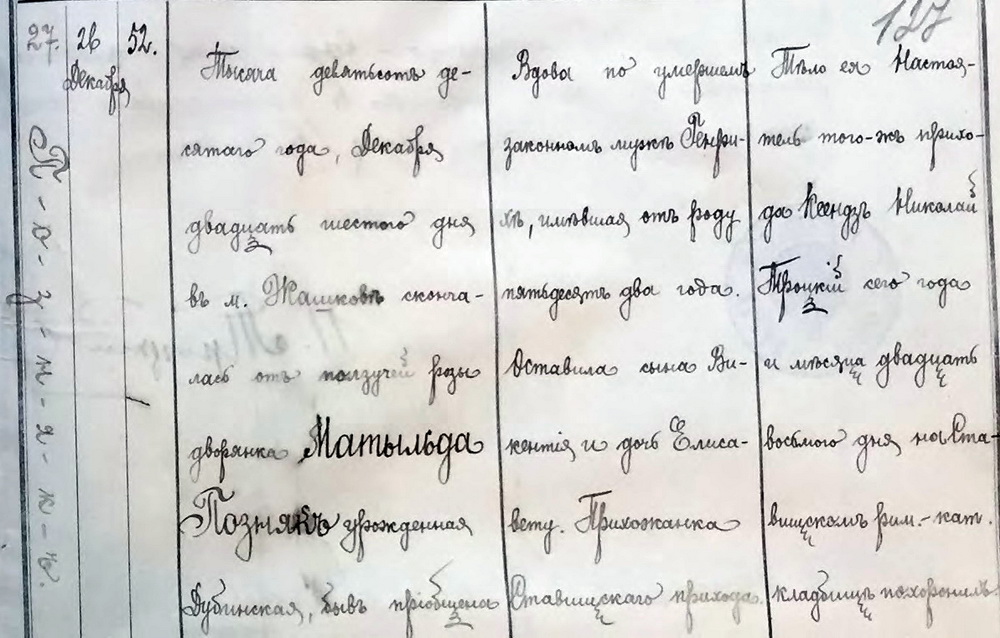 127
27. 26 52.
Декабря
П-о-з-н-я-к-ъ.
Тысяча девятьсотъ де-
сятаго года, Декабря
двадцать шестого дня
въ м. Жашковѣ сконча-
лась отъ ползучей розы
дворянка Матыльда
Познякъ урожденная
Дубинская, бывъ пріобщена
Вдова по умершемъ
законномъ мужѣ Генри-
хѣ, имѣвшая отъ роду
пятьдесятъ два года.
Оставила сына Ви-
кентія и дочь Елиса-
вету. Прихожанка
Ставищскаго прихода.
Тѣло ея Настоя-
тель того-жъ прихо-
да Ксендзъ Николай
Троцкій сего года
и мѣсяца двадцать
восьмого дня на Ста-
вищскомъ рим.-кат.
кладбищѣ похоронилъ.